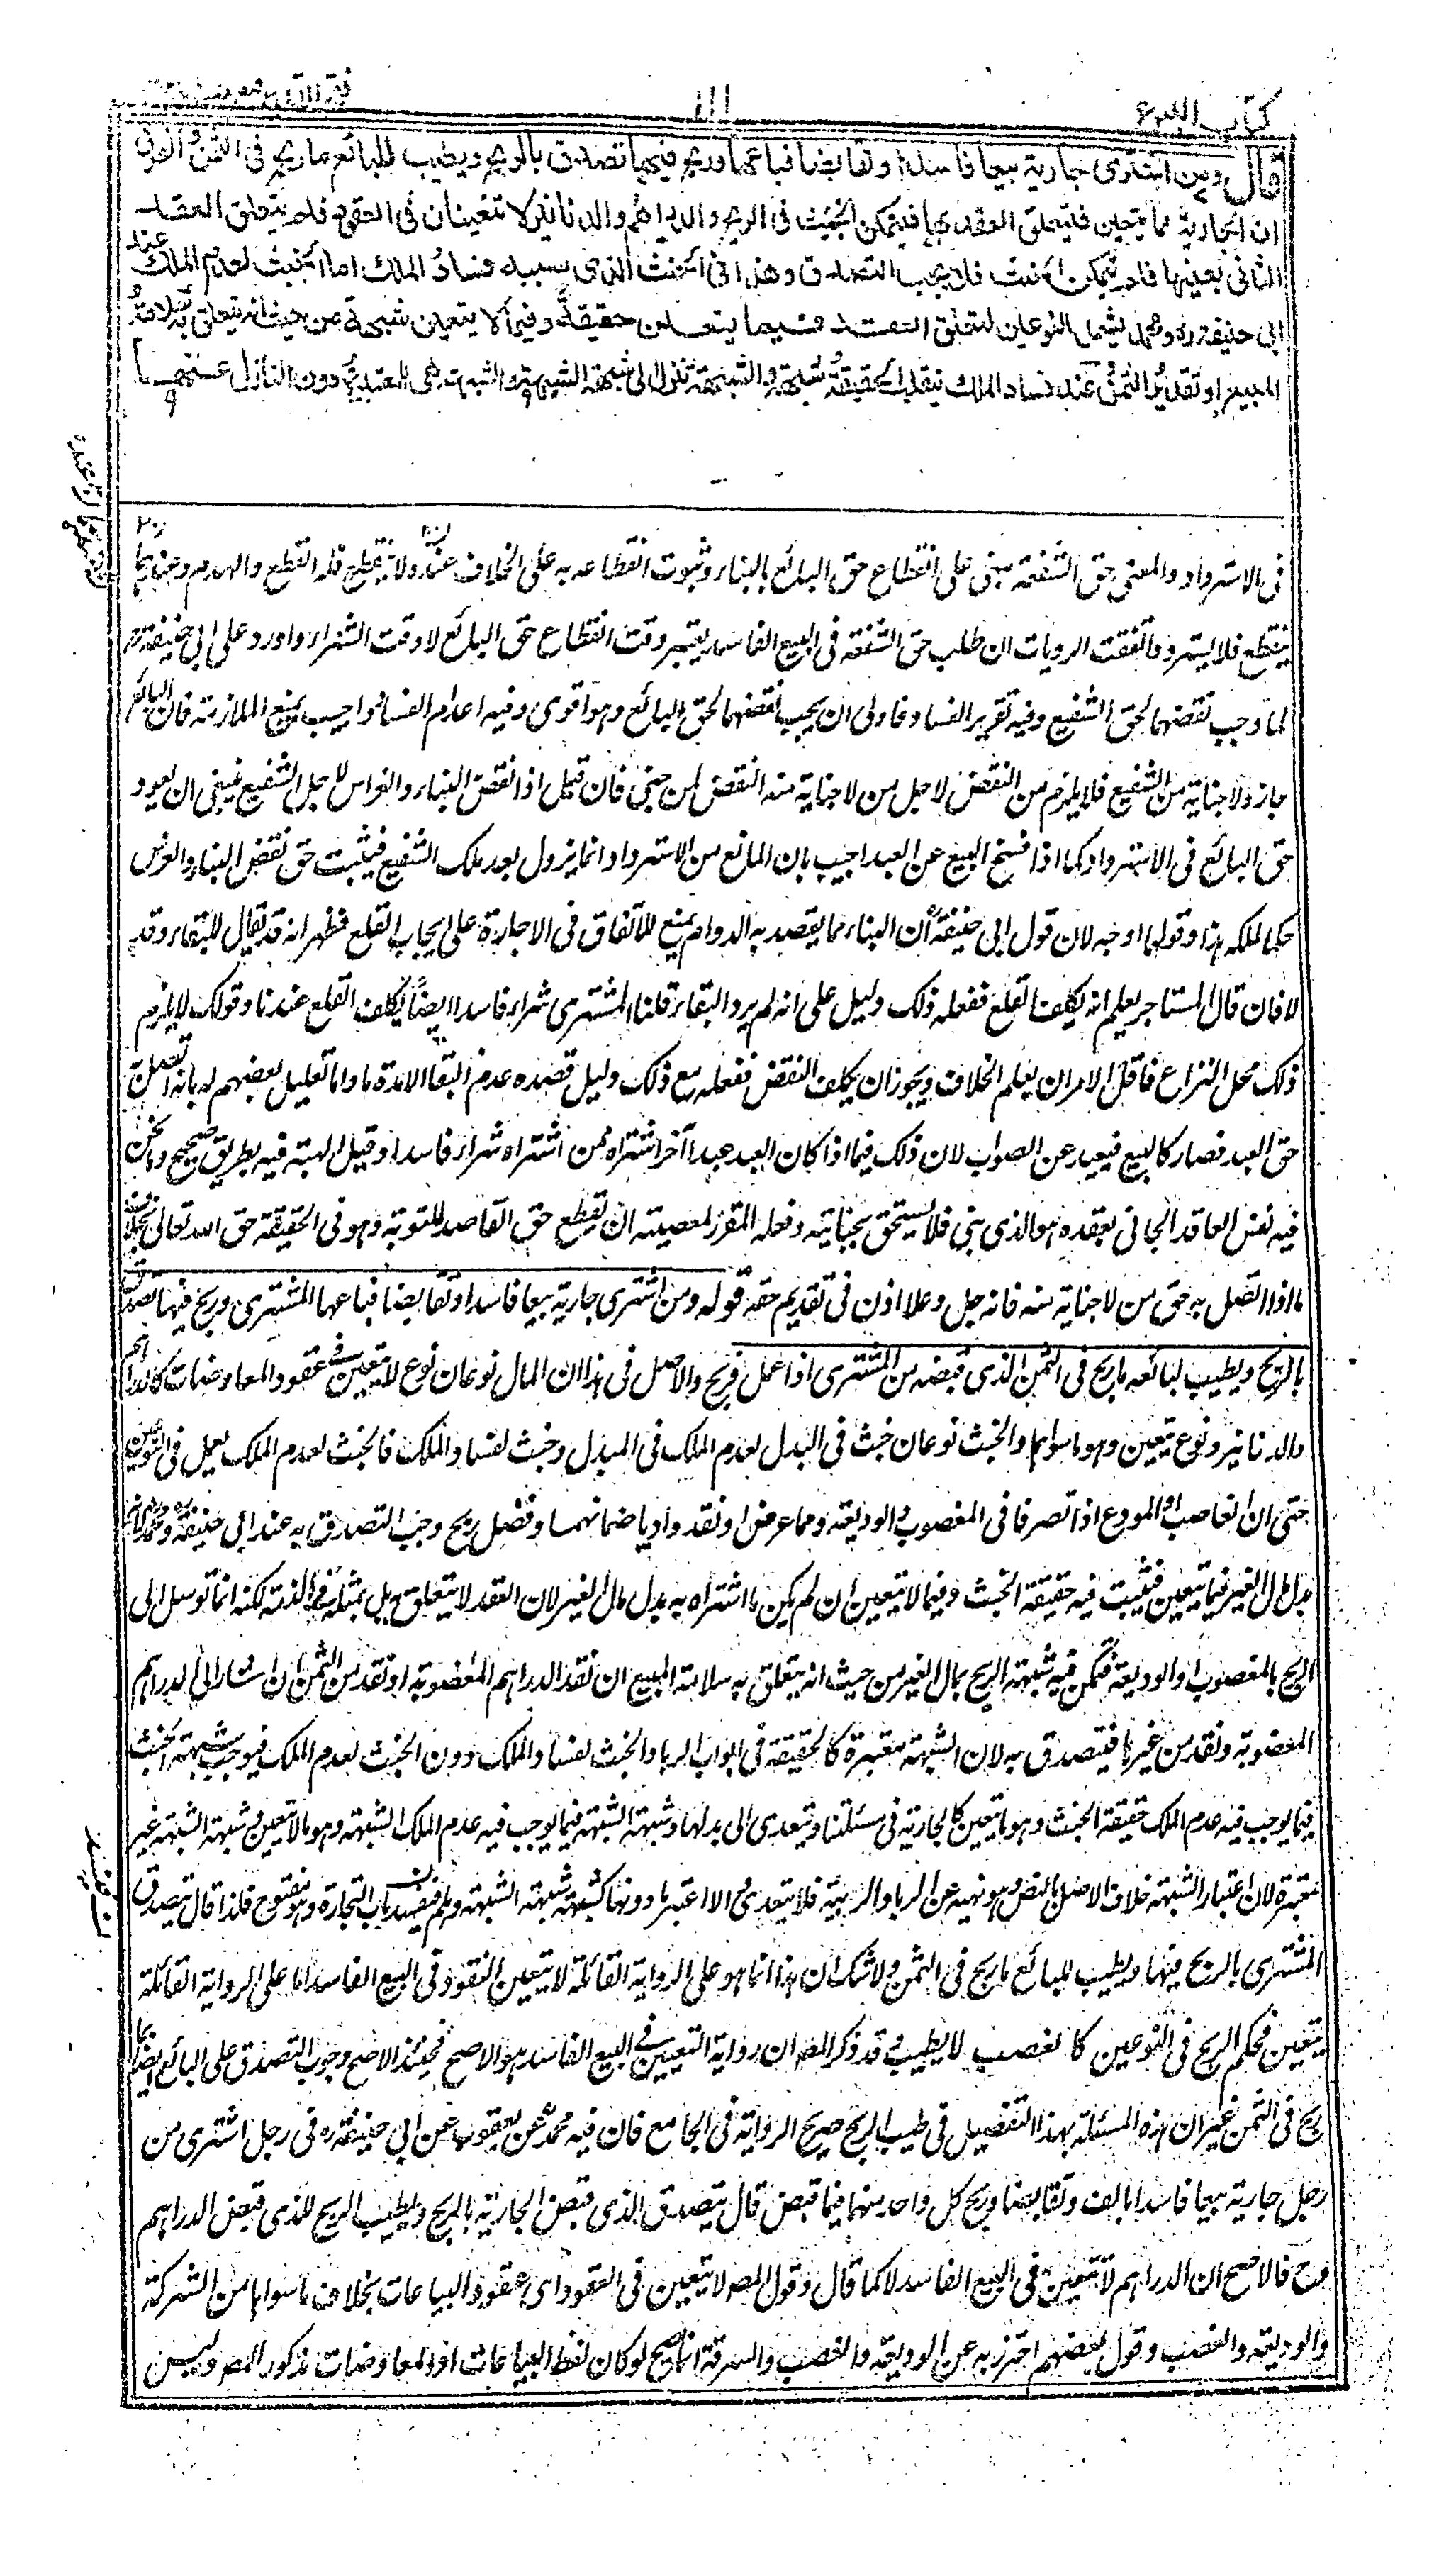 كتاب البيوع
١١١
قال ومن اشترى جارية بيعا فاسدا وتقابضا فباعها وربح فيها تصدق بالربح ويطيب للبائع ما ربح في الثمن والفرق
ان الجارية مما يتعين فيتعلق العقد بها فيتمكن الخبث في الربح والدراهم والدنانير لا تتعينان في العقود فلم يتعلق العقد
الثاني بعينها فلم يتمكن الخبث فلا يجب التصدق وهذا في الخبث الذي بسببه فساد الملك اما الخبث لعدم الملك عند
ابي حنيفة ره ومحمد يشمل النوعين لتعلق العقد فيما يتعين حقيقة وفيما لا يتعين شبهة من حيث انه يتعلق به سلامة
المبيع او تقدير الثمن عند فساد الملك ينقلب الحقيقة شبهة والشبهة تنزل الى شبهة الشبهة والشبهة هي المعتبرة دون النازل عنها
في الاسترداد والمعنى حق الشفعة مبنى على انقطاع حق البائع بالبناء وثبوت انقطاعه به على الخلاف عنده ولا ينقطع فله القطع والهدم وعندهما
ينقطع فلا يسترد واتفقت الروايات ان طلب حق الشفعة في البيع الفاسد يعتبر وقت انقطاع حق البائع لا وقت الشراء واورد على ابي حنيفة
لما وجب نقضهما لحق الشفيع وفيه تقرير الفساد فاولى ان يجب نقضهما لحق البائع وهو اقوى وفيه اعدام الفساد واجيب بمنع الملازمة فان البائع
جاز ولا جناية من الشفيع فلا يلزم من النقض لاجل من لا جناية منه النقض لمن جنى فان قيل اذا نقض البناء والغراس لاجل الشفيع فينبغي ان يعود
حق البائع في الاسترداد كما اذا فسخ البيع عن العبد اجيب بان المانع من الاسترداد انما يزول بعد ملك الشفيع فيثبت حق نقض البناء والغرس
حكما لملكه هذا وقولهما اوجه لان قول ابي حنيفة ان البناء مما يقصد به الدوام يمنع للاتفاق في الاجارة على ايجاب القلع فظهر انه قد يقال للبقاء وقد
لا فان قال المستاجر يعلم انه يكلف القلع ففعله ذلك دليل على انه لم يرد البقاء قلنا المشترى شراء فاسدا ايضا يكلف القلع عندنا وقولك لا يلزم
ذلك محل النزاع فاقل الامر ان يعلم الخلاف ويجوز ان يكلف النقض ففعله مع ذلك دليل قصده عدم البقاء الا مدة ما واما تعليل بعضهم له بانه تعلق
حق العبد فصار كالبيع فبعيد عن الصواب لان ذلك فيما اذا كان العبد عبدا آخر اشتراه ممن اشتراه شراء فاسدا وقيل الهبة فيه بطريق صحيح وما نحن
فيه نفس العاقد الجاني بعقده هو الذي بنى فلا يستحق بجنايته وفعله المقرر لمعصيته ان يقطع حق القاصد للتوبة وهو في الحقيقة حق الله تعالى بخلاف
ما اذا اتصل به حق من لا جناية منه فانه جل وعلا اذن في تقديم حقه قوله ومن اشترى جارية بيعا فاسدا وتقابضا فباعها المشترى وربح فيها تصدق
بالربح ويطيب لبائعه ما ربح في الثمن الذي قبضه من المشترى اذا عمل فربح والاصل في هذا ان المال نوعان نوع لا يتعين في عقود المعاوضات كالدراهم
والدنانير ونوع يتعين وهو ما سواهما والخبث نوعان خبث في البدل لعدم الملك في المبدل وخبث لفساد الملك فالخبث لعدم الملك يعمل في النوعين
حتى ان الغاصب او المودع اذا تصرفا في المغصوب والوديعة وهما عرض او نقد واديا ضمانهما وفضل ربح وجب التصدق به عند ابي حنيفة ومحمد لانه
بدل مال الغير فيما يتعين فيثبت فيه حقيقة الخبث وفيما لا يتعين ان لم يكن ما اشتراه به بدل مال الغير لان العقد لا يتعلق به بل بمثله في الذمة لكنه انما توسل الى
الربح بالمغصوب او الوديعة فتمكن فيه شبهة الربح بمال الغير من حيث انه يتعلق به سلامة المبيع ان نقد الدراهم المغصوبة او تقدير الثمن ان اشار الى الدراهم
المغصوبة ونقد من غيرها فيتصدق به لان الشبهة معتبرة كالحقيقة في ابواب الربا والخبث لفساد الملك دون الخبث لعدم الملك فيوجب شبهة الخبث
فيما يوجب فيه عدم الملك حقيقة الخبث وهو ما يتعين كالجارية في مسئلتنا ويتعدى الى بدلها وشبهة الشبهة فيما يوجب فيه عدم الملك الشبهة وهو ما لا يتعين وشبهة الشبهة غير
معتبرة لان اعتبار الشبهة خلاف الاصل بالنص وهو نهيه عن الربا والريبة فلا يتعدى ولا اعتبر ما دونها كشبهة شبهة الشبهة وهلم فينسد باب التجارة وهو مفتوح فلذا قال يتصدق
المشترى بالربح فيها ويطيب للبائع ما ربح في الثمن ولا شك ان هذا انما هو على الرواية القائلة لا يتعين النقود في البيع الفاسد اما على الرواية القائلة
يتعين فحكم الربح في النوعين كالغصب لا يطيب وقد ذكر المص ان رواية التعيين في البيع الفاسد هو الاصح فحينئذ الاصح وجوب التصدق على البائع ايضا بما
ربح في الثمن غير ان هذه المسئلة بهذا التفصيل في طيب الربح صريح الرواية في الجامع فان فيه محمد عن يعقوب عن ابي حنيفة ره في رجل اشترى من
رجل جارية بيعا فاسدا بالف وتقابضا وربح كل واحد منهما فيما قبض قال يتصدق الذي قبض الجارية بالربح ويطيب الربح للذي قبض الدراهم
وح فالاصح ان الدراهم لا تتعين في البيع الفاسد لا كما قال وقول المص لا يتعين في العقود اى عقود البياعات بخلاف ما سواها من الشركة
والوديعة والغصب وقول بعضهم احترز به عن الوديعة والغصب والسرقة انما يصح لو كان لفظ البياعات او المعاوضات مذكور المص وليس